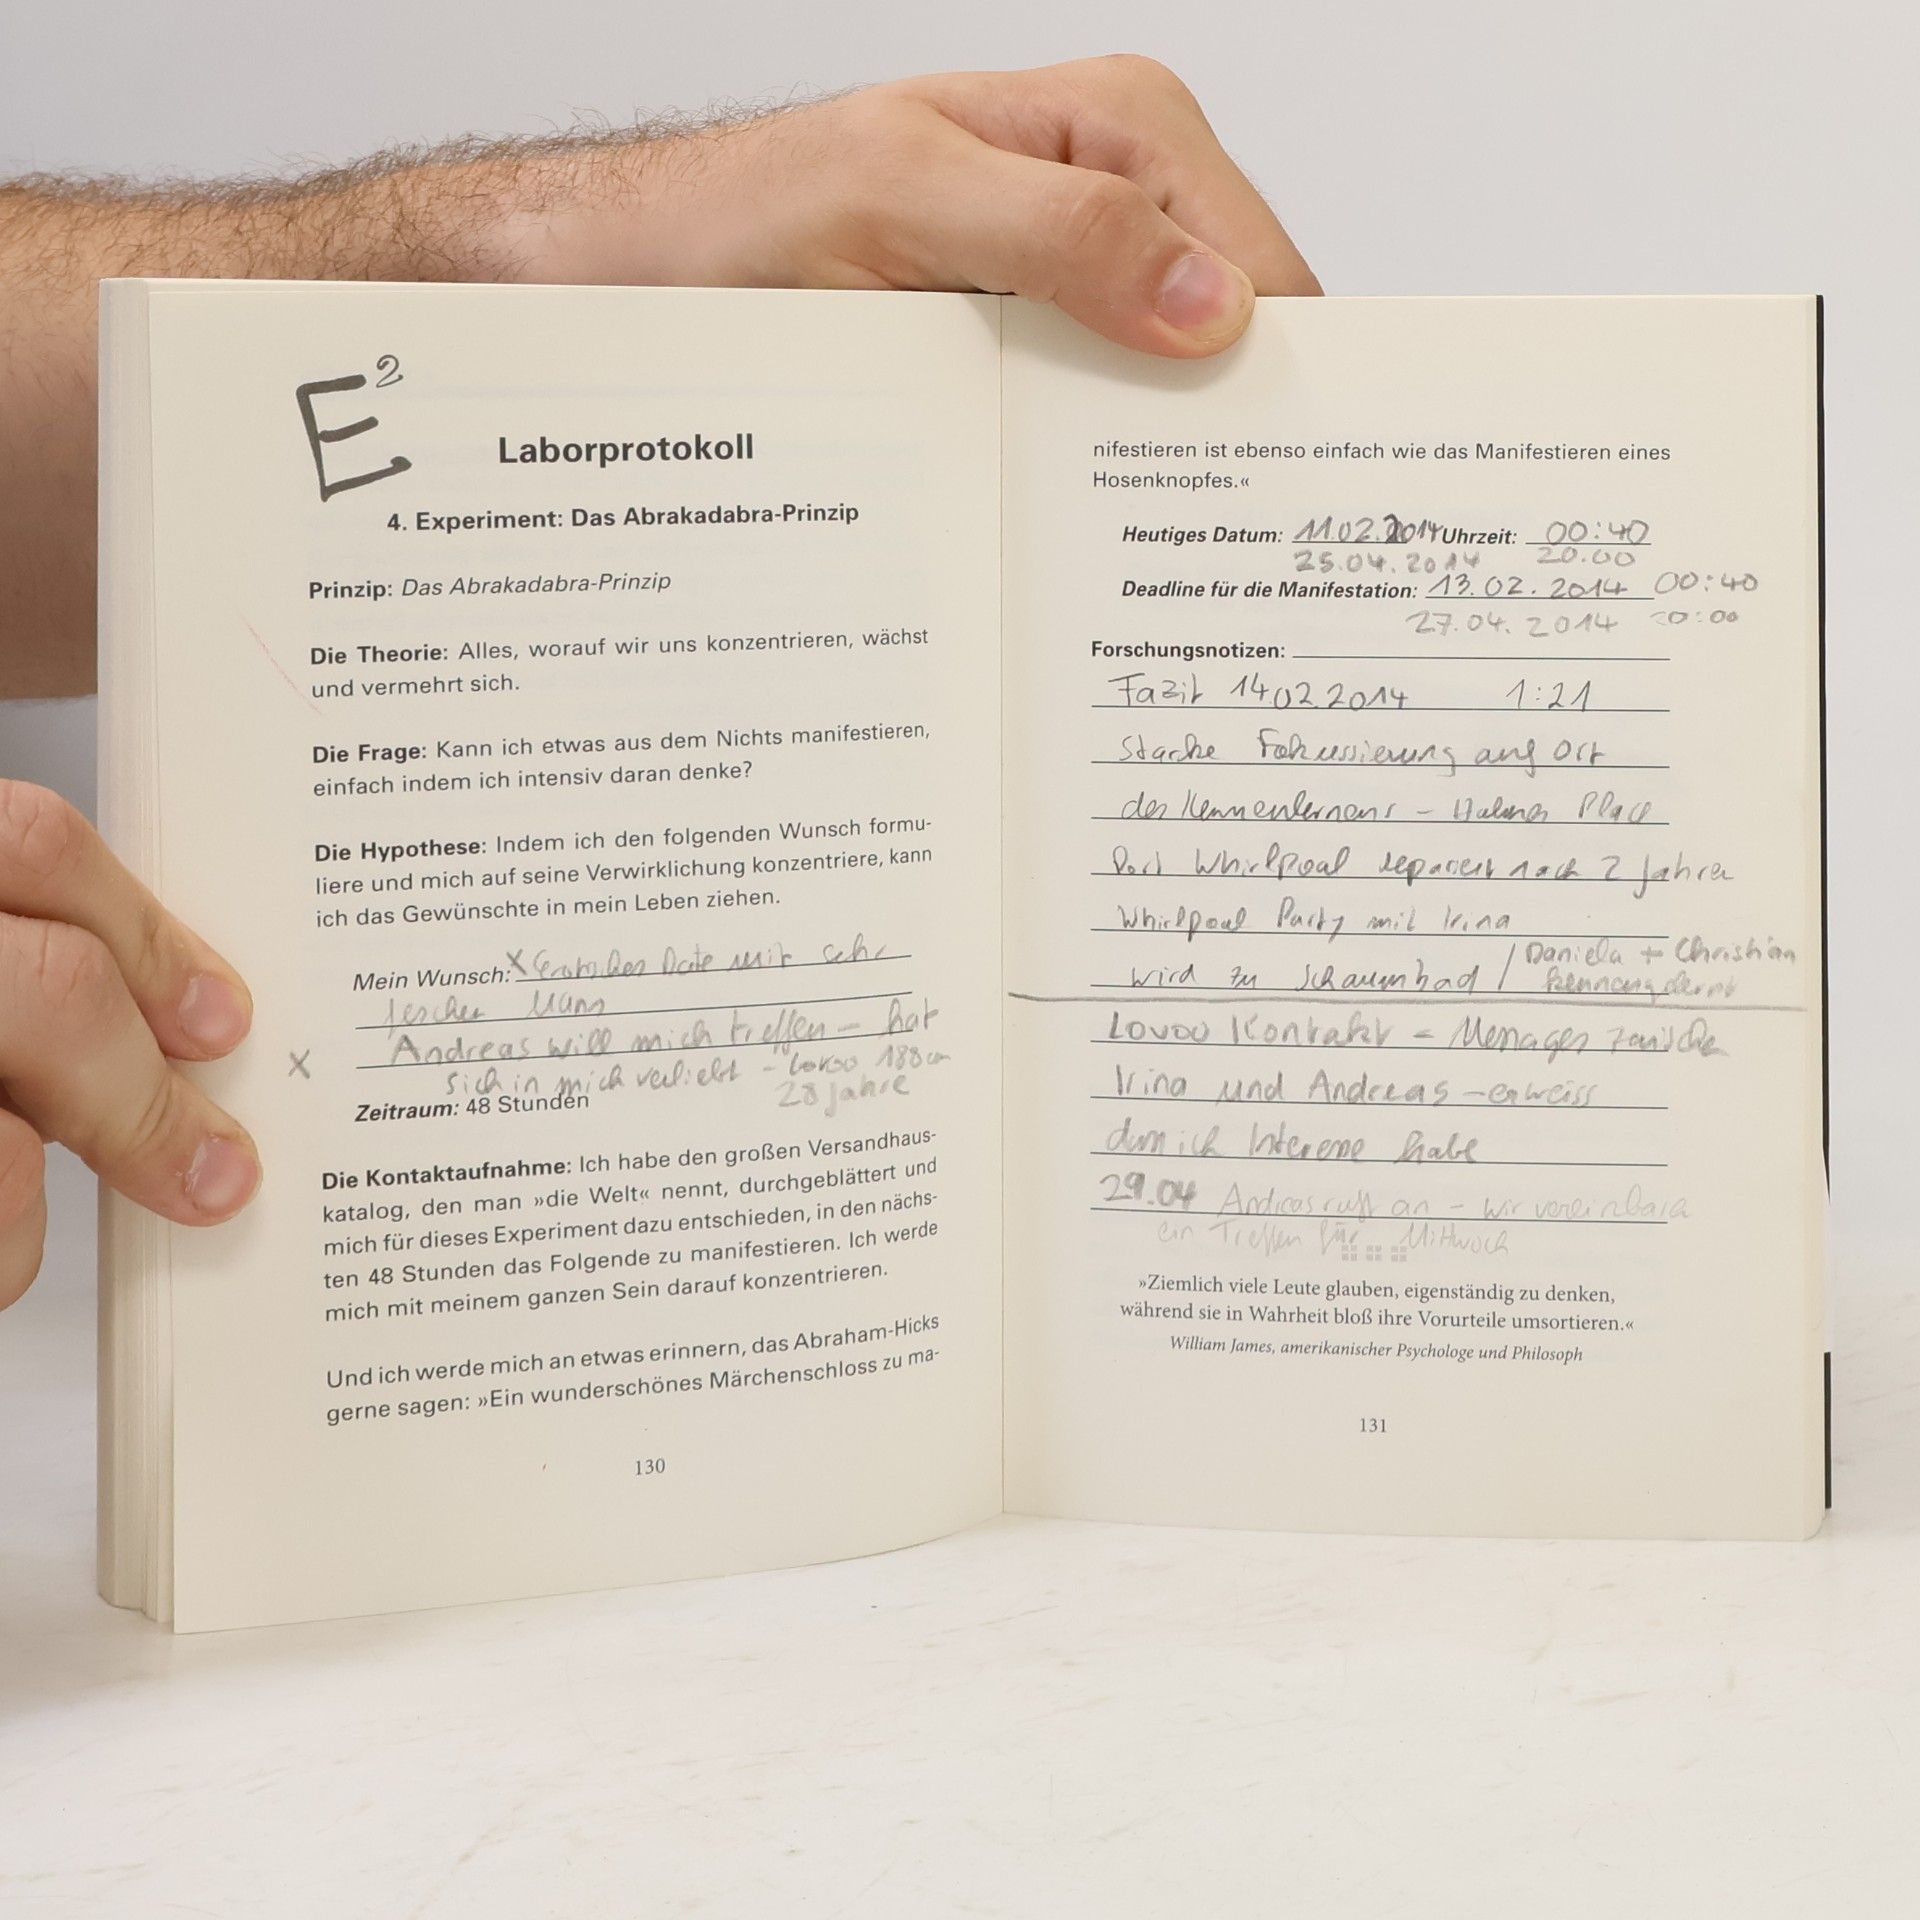 E²
Laborprotokoll
4. Experiment: Das Abrakadabra-Prinzip
Prinzip: Das Abrakadabra-Prinzip
Die Theorie: Alles, worauf wir uns konzentrieren, wächst
und vermehrt sich.
Die Frage: Kann ich etwas aus dem Nichts manifestieren,
einfach indem ich intensiv daran denke?
Die Hypothese: Indem ich den folgenden Wunsch formu-
liere und mich auf seine Verwirklichung konzentriere, kann
ich das Gewünschte in mein Leben ziehen.
Mein Wunsch: x Date mit sehr
feschen Mann
x Andreas will mich treffen – hat
sich in mich verliebt – Lovoo 188 cm
28 Jahre
Zeitraum: 48 Stunden
Die Kontaktaufnahme: Ich habe den großen Versandhaus-
katalog, den man »die Welt« nennt, durchgeblättert und
mich für dieses Experiment dazu entschieden, in den nächs-
ten 48 Stunden das Folgende zu manifestieren. Ich werde
mich mit meinem ganzen Sein darauf konzentrieren.
Und ich werde mich an etwas erinnern, das Abraham-Hicks
gerne sagen: »Ein wunderschönes Märchenschloss zu ma-
130
nifestieren ist ebenso einfach wie das Manifestieren eines
Hosenknopfes.«
Heutiges Datum: 11.02.2014 Uhrzeit: 00:40
25.04.2014 20.00
Deadline für die Manifestation: 13.02.2014 00:40
27.04.2014 20:00
Forschungsnotizen:
Fazit 14.02.2014 1:21
Starke Fokussierung auf Ort
des Kennenlernens – Holmes Place
Dort Whirlpool repariert nach 2 Jahren
Whirlpool Party mit Irina
wird zu Schaumbad / Daniela + Christian
kennengelernt
Lovoo Kontakt = Messages zwischen
Irina und Andreas – er weiss
dass ich Interesse habe
29.04 Andreas ruft an – wir vereinbaren
ein Treffen für Mittwoch
»Ziemlich viele Leute glauben, eigenständig zu denken,
während sie in Wahrheit bloß ihre Vorurteile umsortieren.«
William James, amerikanischer Psychologe und Philosoph
131